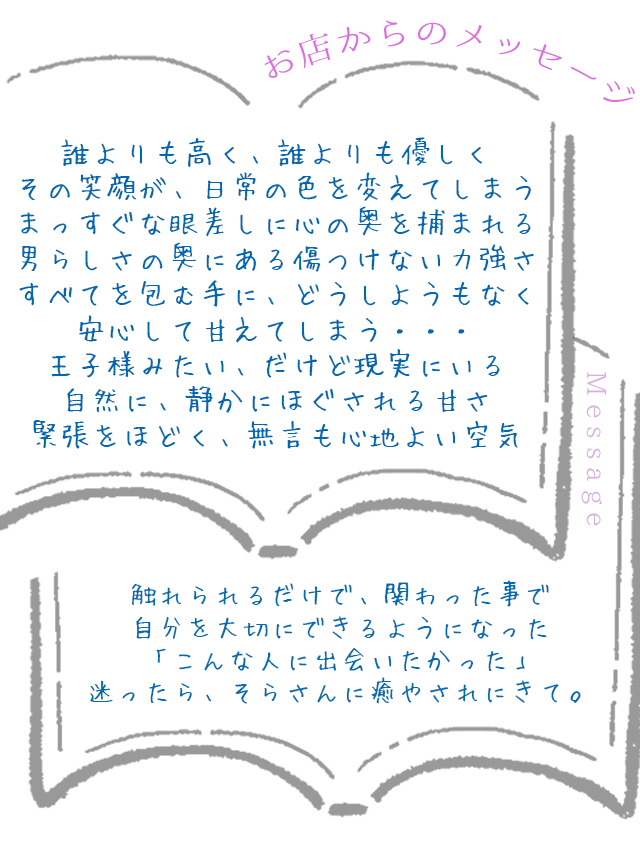 お店からのメッセージ
誰よりも高く、誰よりも優しく
その笑顔が、日常の色を変えてしまう
まっすぐな眼差しに心の奥を捕まれる
男らしさの奥にある傷つけない力強さ
すべてを包む手に、どうしようもなく
安心して甘えてしまう・・・
王子様みたい、だけど現実にいる
自然に、静かにほぐされる甘さ
緊張をほどく、無言も心地よい空気
Message
触れられるだけで、関わった事で
自分を大切にできるようになった
「こんな人に出会いたかった」
迷ったら、そらさんに癒やされにきて。